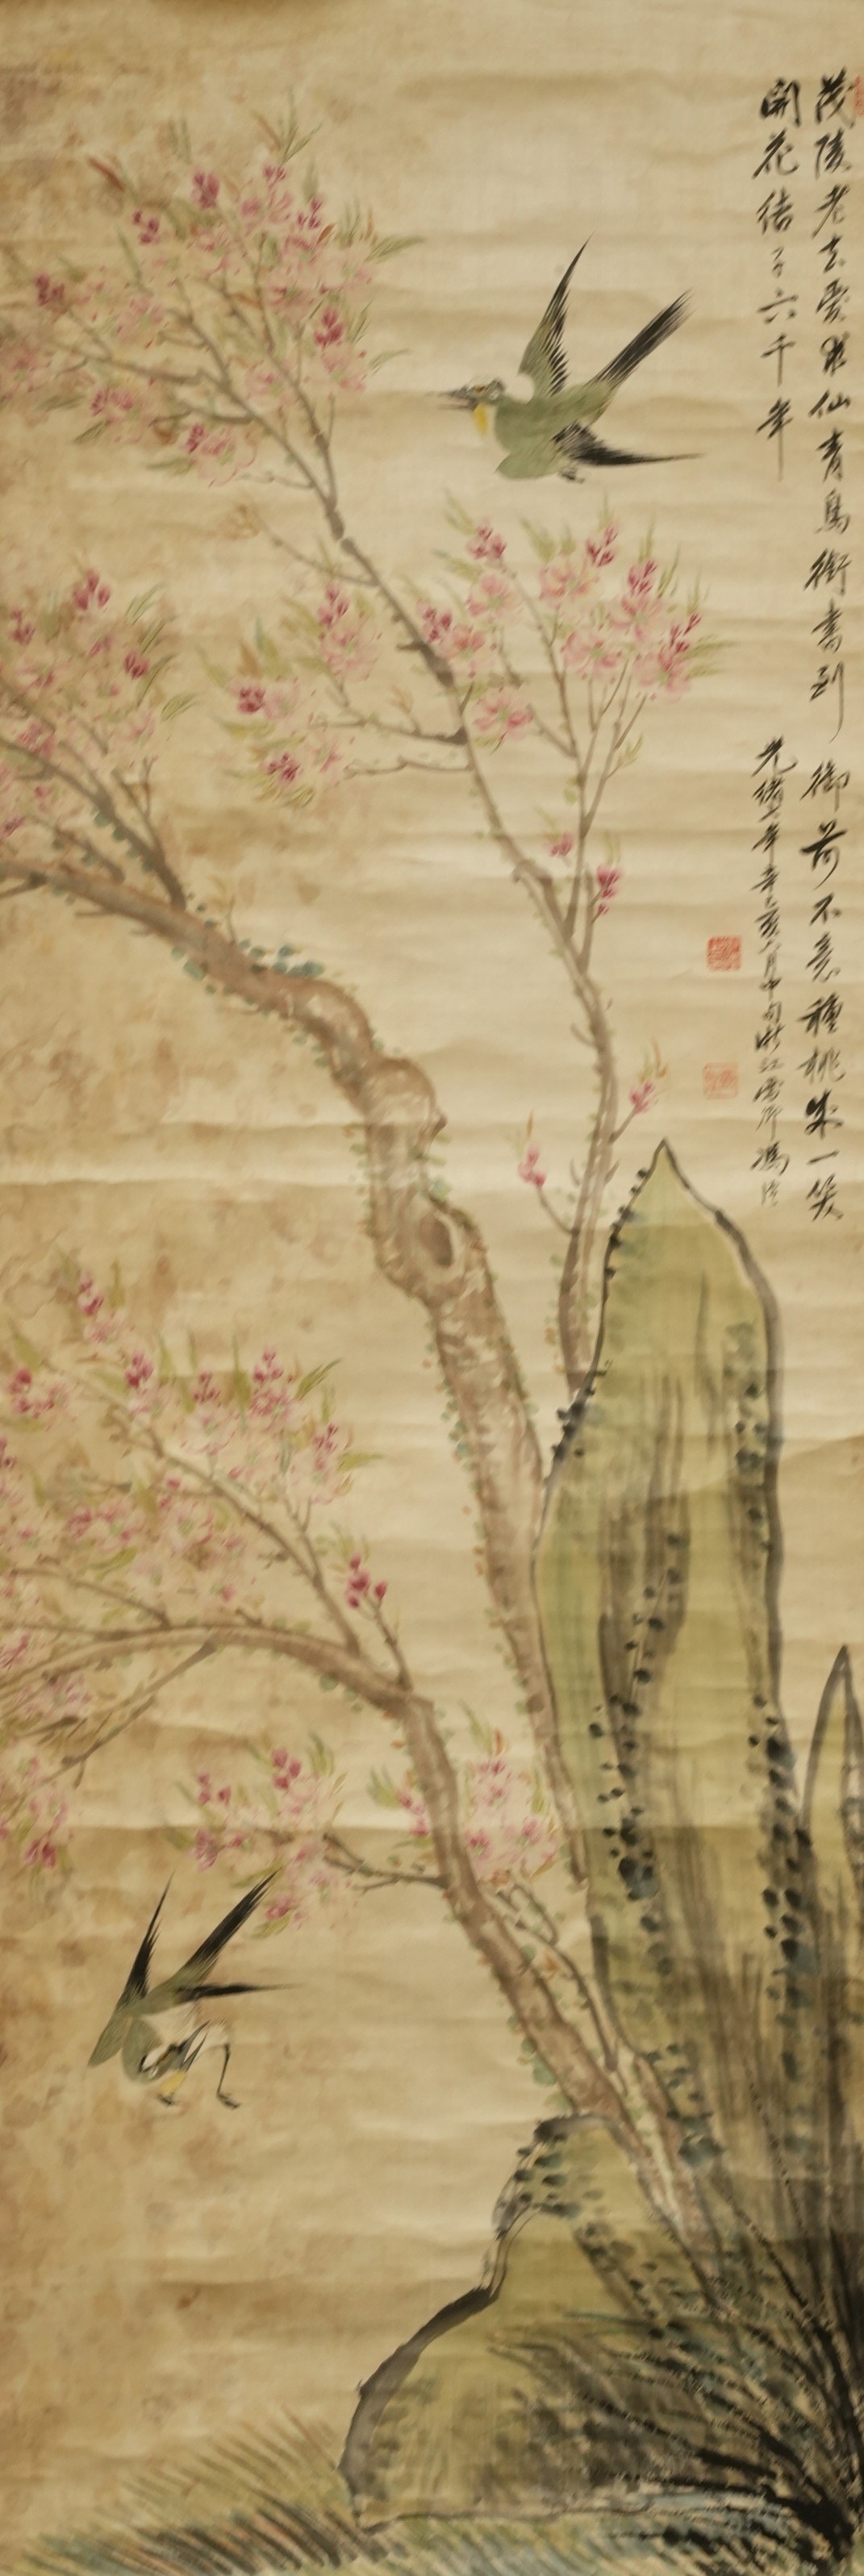 茂陵老去愛求仙青鳥銜書到御前不免種桃朱一笑
開花結子六千年
光緒七年辛巳八月中旬浙江雲卿馮